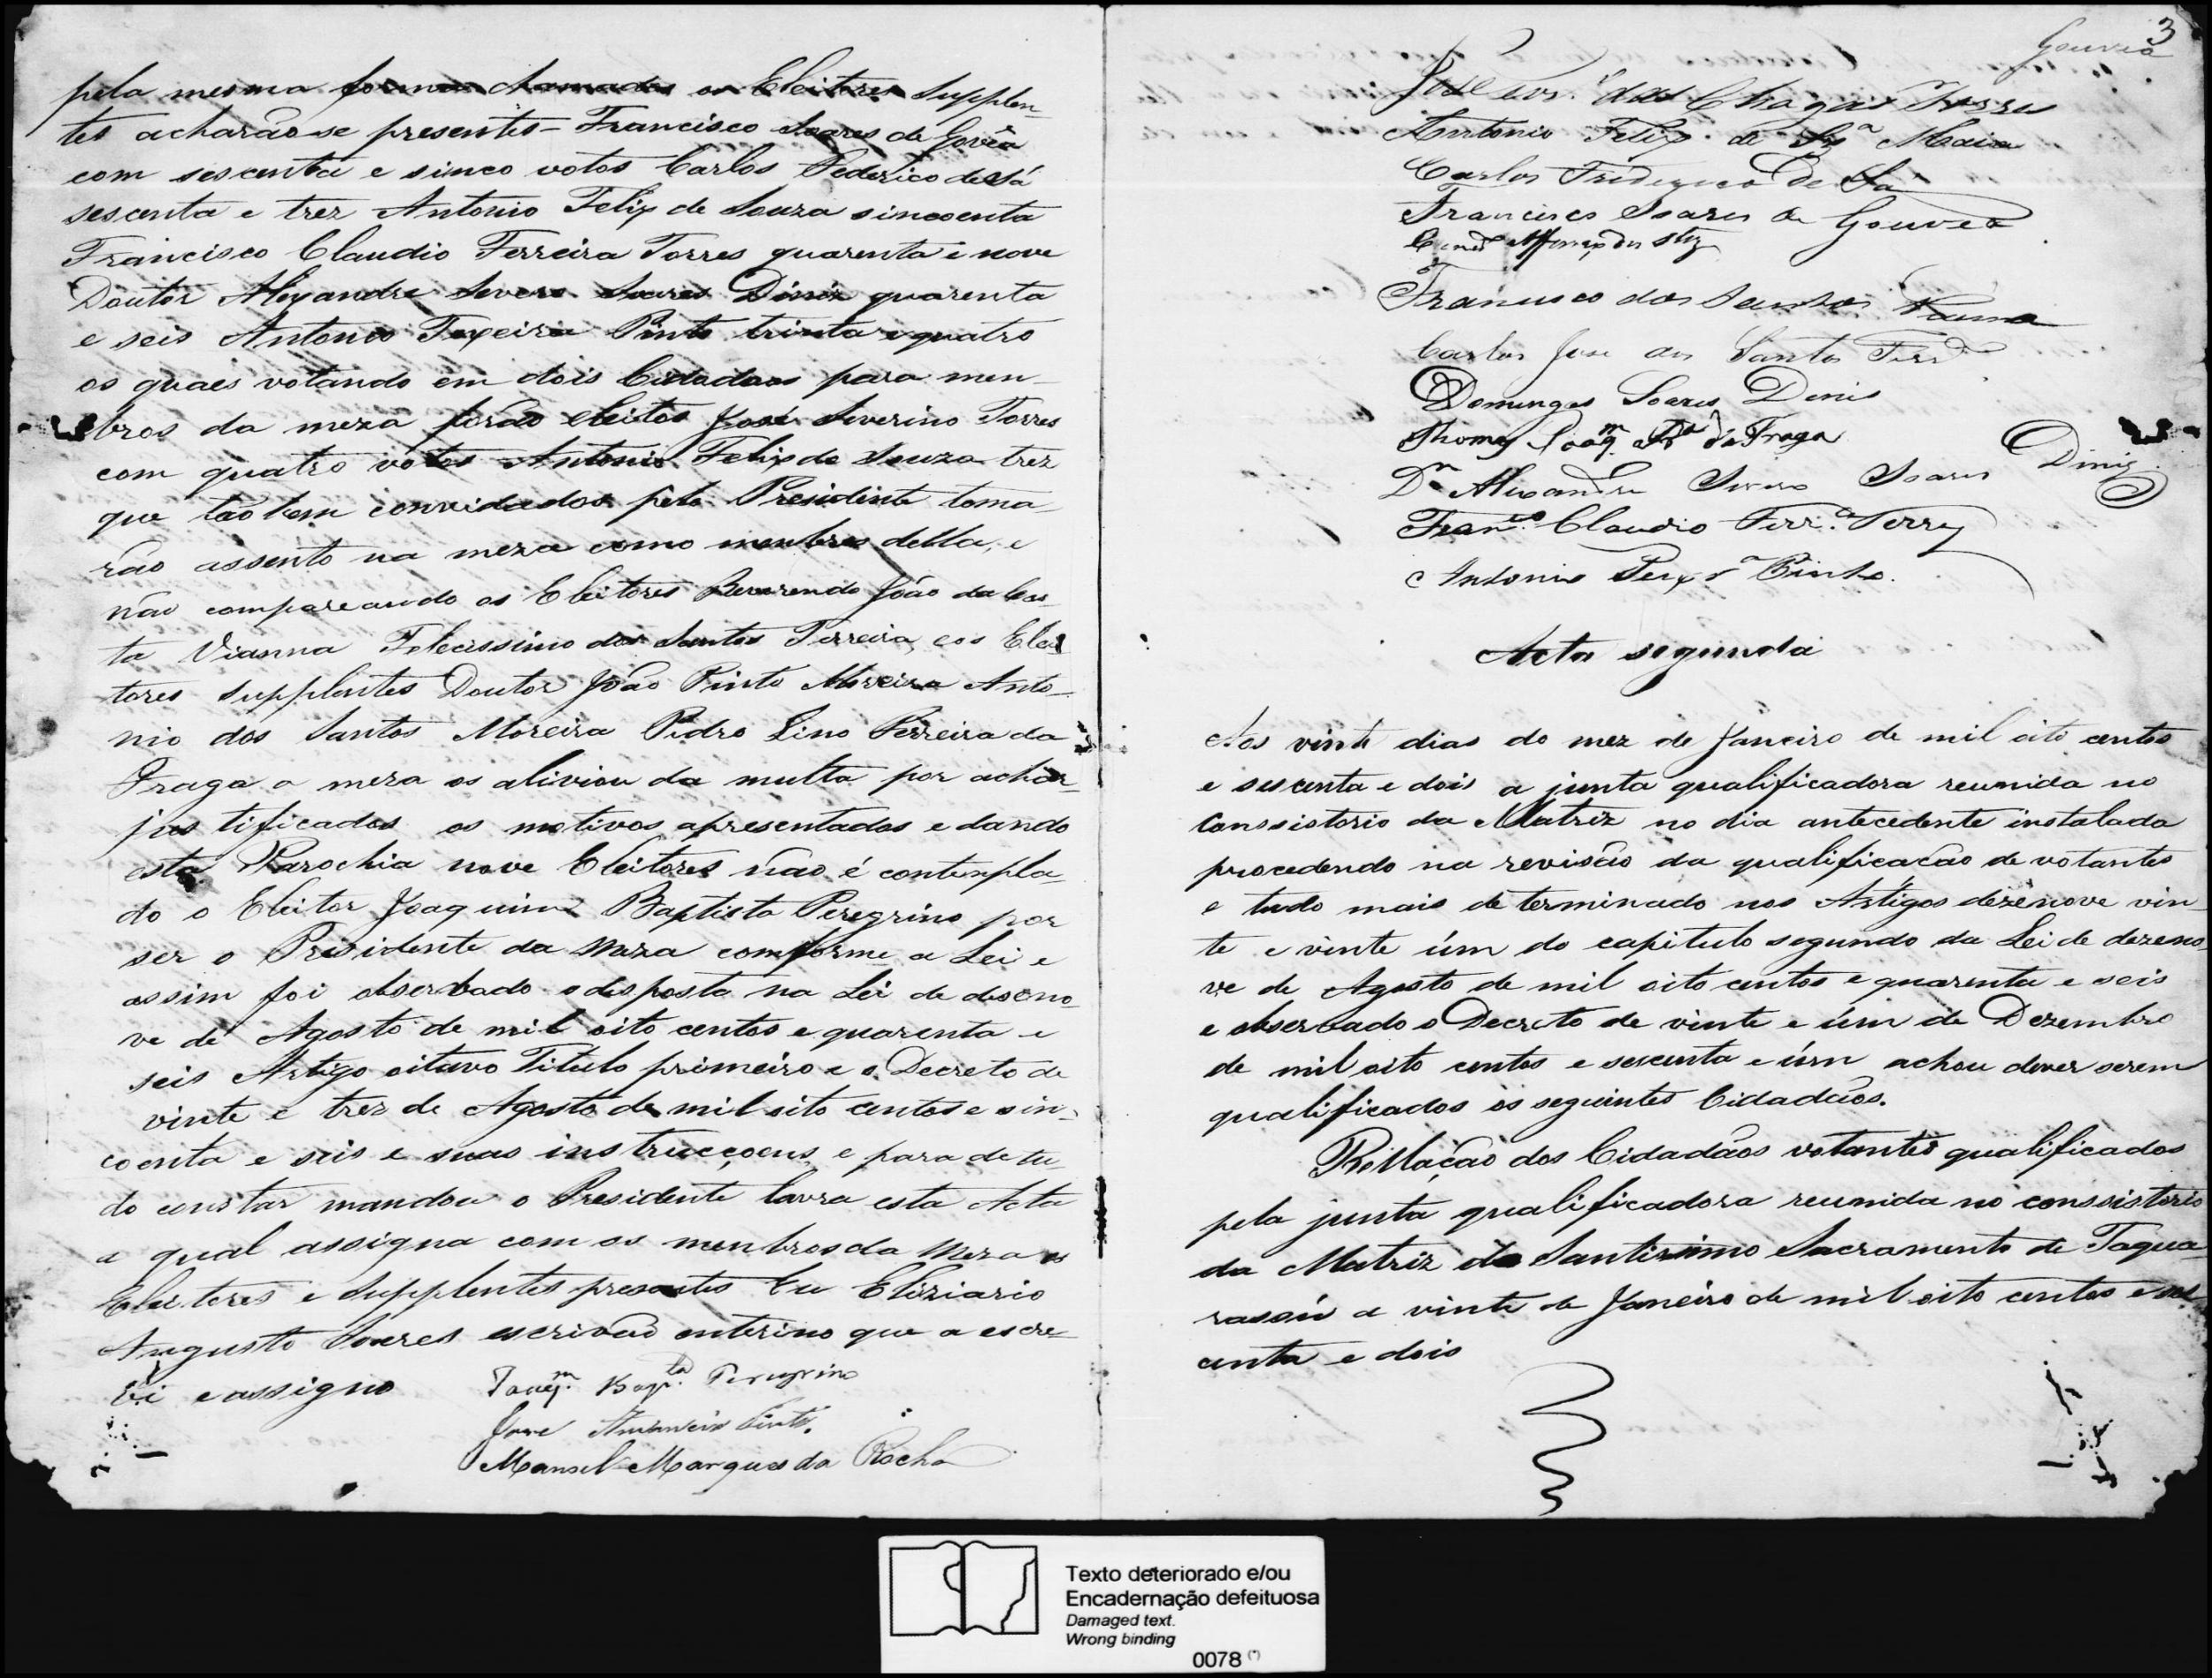 pela mesma forma chamados os Eleitores Supplen-
tes acharão-se presentes - Francisco Soares de Govêa
com sescenta e sinco votos Carlos Federico de Sá
sescenta e trez Antonio Felix de Souza sincoenta
Francisco Claudio Ferreira Torres quarenta e nove
Doutor Alexandre Severo Soares Diniz quarenta
e seis Antonio Teixeira Pinto trinta e quatro
os quaes votando em dois Cidadaos para men-
bros da meza forão eleitos José Severino Torres
com quatro votos Antonio Felix de Souza trez
que tão bem convidados pelo Presidente toma-
rão assento na meza como menbros della, e
não comparecendo os Eleitores Reverendo João da Cos-
ta Vianna Felecissimo dos Santos Ferreira, e os Elei
tores Supplentes Doutor João Pinto Moreira Anto-
nio dos Santos Moreira Pedro Lino Ferreira da
Fraga a meza os aliviou da multa por achar-
jus tificados os motivos apresentados e dando
esta Parochia nove Eleitores não é contempla-
do o Eleitor Joaquim Baptista Peregrino por
ser o Presidente da Meza comforme a Lei e
assim foi observado o desposto na Lei de deseno-
ve de Agosto de mil oito centos e quarenta e
seis Artigo oitavo Titulo primeiro e o Decreto de
vinte e trez de Agosto de mil oito centos e sin-
coenta e seis e suas instrucçoens, e para de tu-
do constar mandou o Presidente lavra esta Acta
a qual assigna com os menbros da Meza os
Eleitores e Supplentes presentes Eu Eliziario
Augusto Soares escrivão enterino que a escre-
vi e assigno Joaq.^m Bap.^ta Peregrino
Jose Pinto.
Manoel Marques da Rocha
3
Gouvea
José das Chagas Torres
Antonio Felix de Sz.^a Maia
Carlos Frederico de Sá
Francisco Soares de Gouvea
Francisco dos Santos Vianna
Carlos Jose dos Santos Ferr.^a
Domingos Soares Denis
Thomas Joaq.^m da Fraga
D.^r Alexandre Severo Soares Diniz
Fran.^co Claudio Ferr.^a Torres
Antonio Teix.^ra Pinto.
Acta segunda
Aos vinte dias do mez de Janeiro de mil oito centos
e sescenta e dois a junta qualificadora reunida no
Conssistorio da Matriz no dia antecedente instalada
procedendo na revisão da qualificacão de votantes
e tudo mais determinado nos Artigos dezenove vin-
te e vinte úm do capitulo segundo da Lei de dezeno-
ve de Agosto de mil oito centos e quarenta e seis
e observado o Decreto de vinte e úm de Dezembro
de mil oito centos e sescenta e úm achou dever serem
qualificados os seguintes Cidadãos.
Rellação dos Cidadãos votantes qualificados
pela junta qualificadora reunida no conssistorio
da Matriz do Santissimo Sacramento de Taqua-
rassú a vinte de Janeiro de mil oito centos e ses
centa e dois
Texto deteriorado e/ou
Encadernação defeituosa
Damaged text.
Wrong binding
0078 (*)